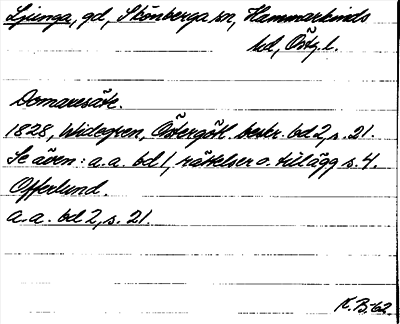 Ljunga, gd, Skönberga sn, Hammarkinds
hd, Östg. l.
Domaresäte.
1828, Widegren, Östergötl. beskr. bd 2, s. 21.
Se även: a.a. bd 1, rättelser o. tillägg s. 4.
Offerlund.
a.a. bd 2, s. 21.
K.B. 62